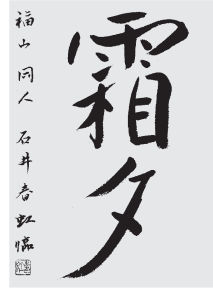 霜夕
福山 同人 石井春虹臨